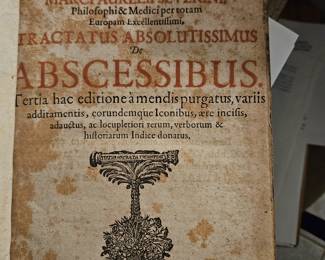 MARCI AURELII SEVERINI,
Philosophi & Medici per totam
Europam Excellentissimi,
TRACTATUS ABSOLUTISSIMUS
De
ABSCESSIBUS.
Tertia hac editione à mendis purgatus, variis
additamentis, eorundemque Iconibus, ære incisis,
adauctus, ac locupletiori rerum, verborum &
historiarum Indice donatus.